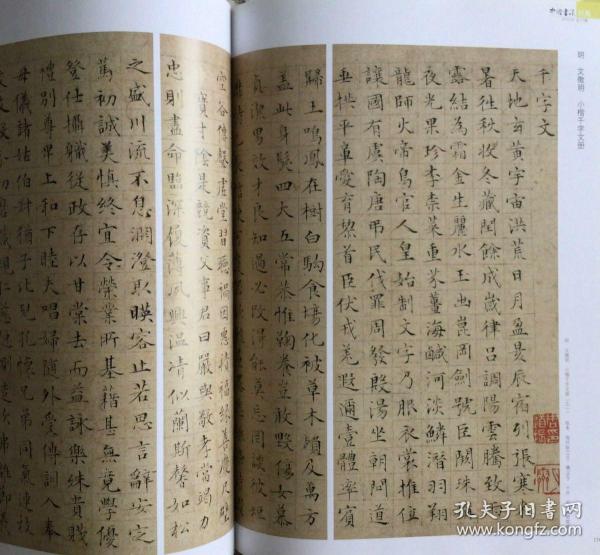 中国书法
明 文徵明 小楷千字文册
千字文
天地玄黃宇宙洪荒日月盈昃辰宿列張寒
暑往秋收冬藏閏餘成歲律呂調陽雲騰致
露結為霜金生麗水玉出崑岡劍號巨闕珠
夜光果珍李柰菜重芥薑海鹹河淡鱗潛羽翔
龍師火帝鳥官人皇始制文字乃服衣裳推位
讓國有虞陶唐弔民伐罪周發殷湯坐朝問道
垂拱平章愛育黎首臣伏戎羌遐邇壹體率賓
歸王鳴鳳在樹白駒食場化被草木賴及萬方
蓋此身髮四大五常恭惟鞠養豈敢毀傷女慕
貞潔男效才良知過必改得能莫忘罔談彼短
空谷傳聲虛堂習聽禍因惡積福緣善慶尺璧
寶寸陰是競資父事君曰嚴與敬孝當竭力
忠則盡命臨深履薄夙興溫凊似蘭斯馨如松
之盛川流不息淵澄取暎容止若思言辭安定
篤初誠美慎終宜令榮業所基藉甚無竟學優
登仕攝職從政存以甘棠去而益詠樂殊貴賤
禮別尊卑上和下睦夫唱婦隨外受傅訓入奉
母儀諸姑伯叔猶子比兒孔懷兄弟同氣連枝
切磨箴規仁慈隱惻造次弗離節
孔夫子旧书网